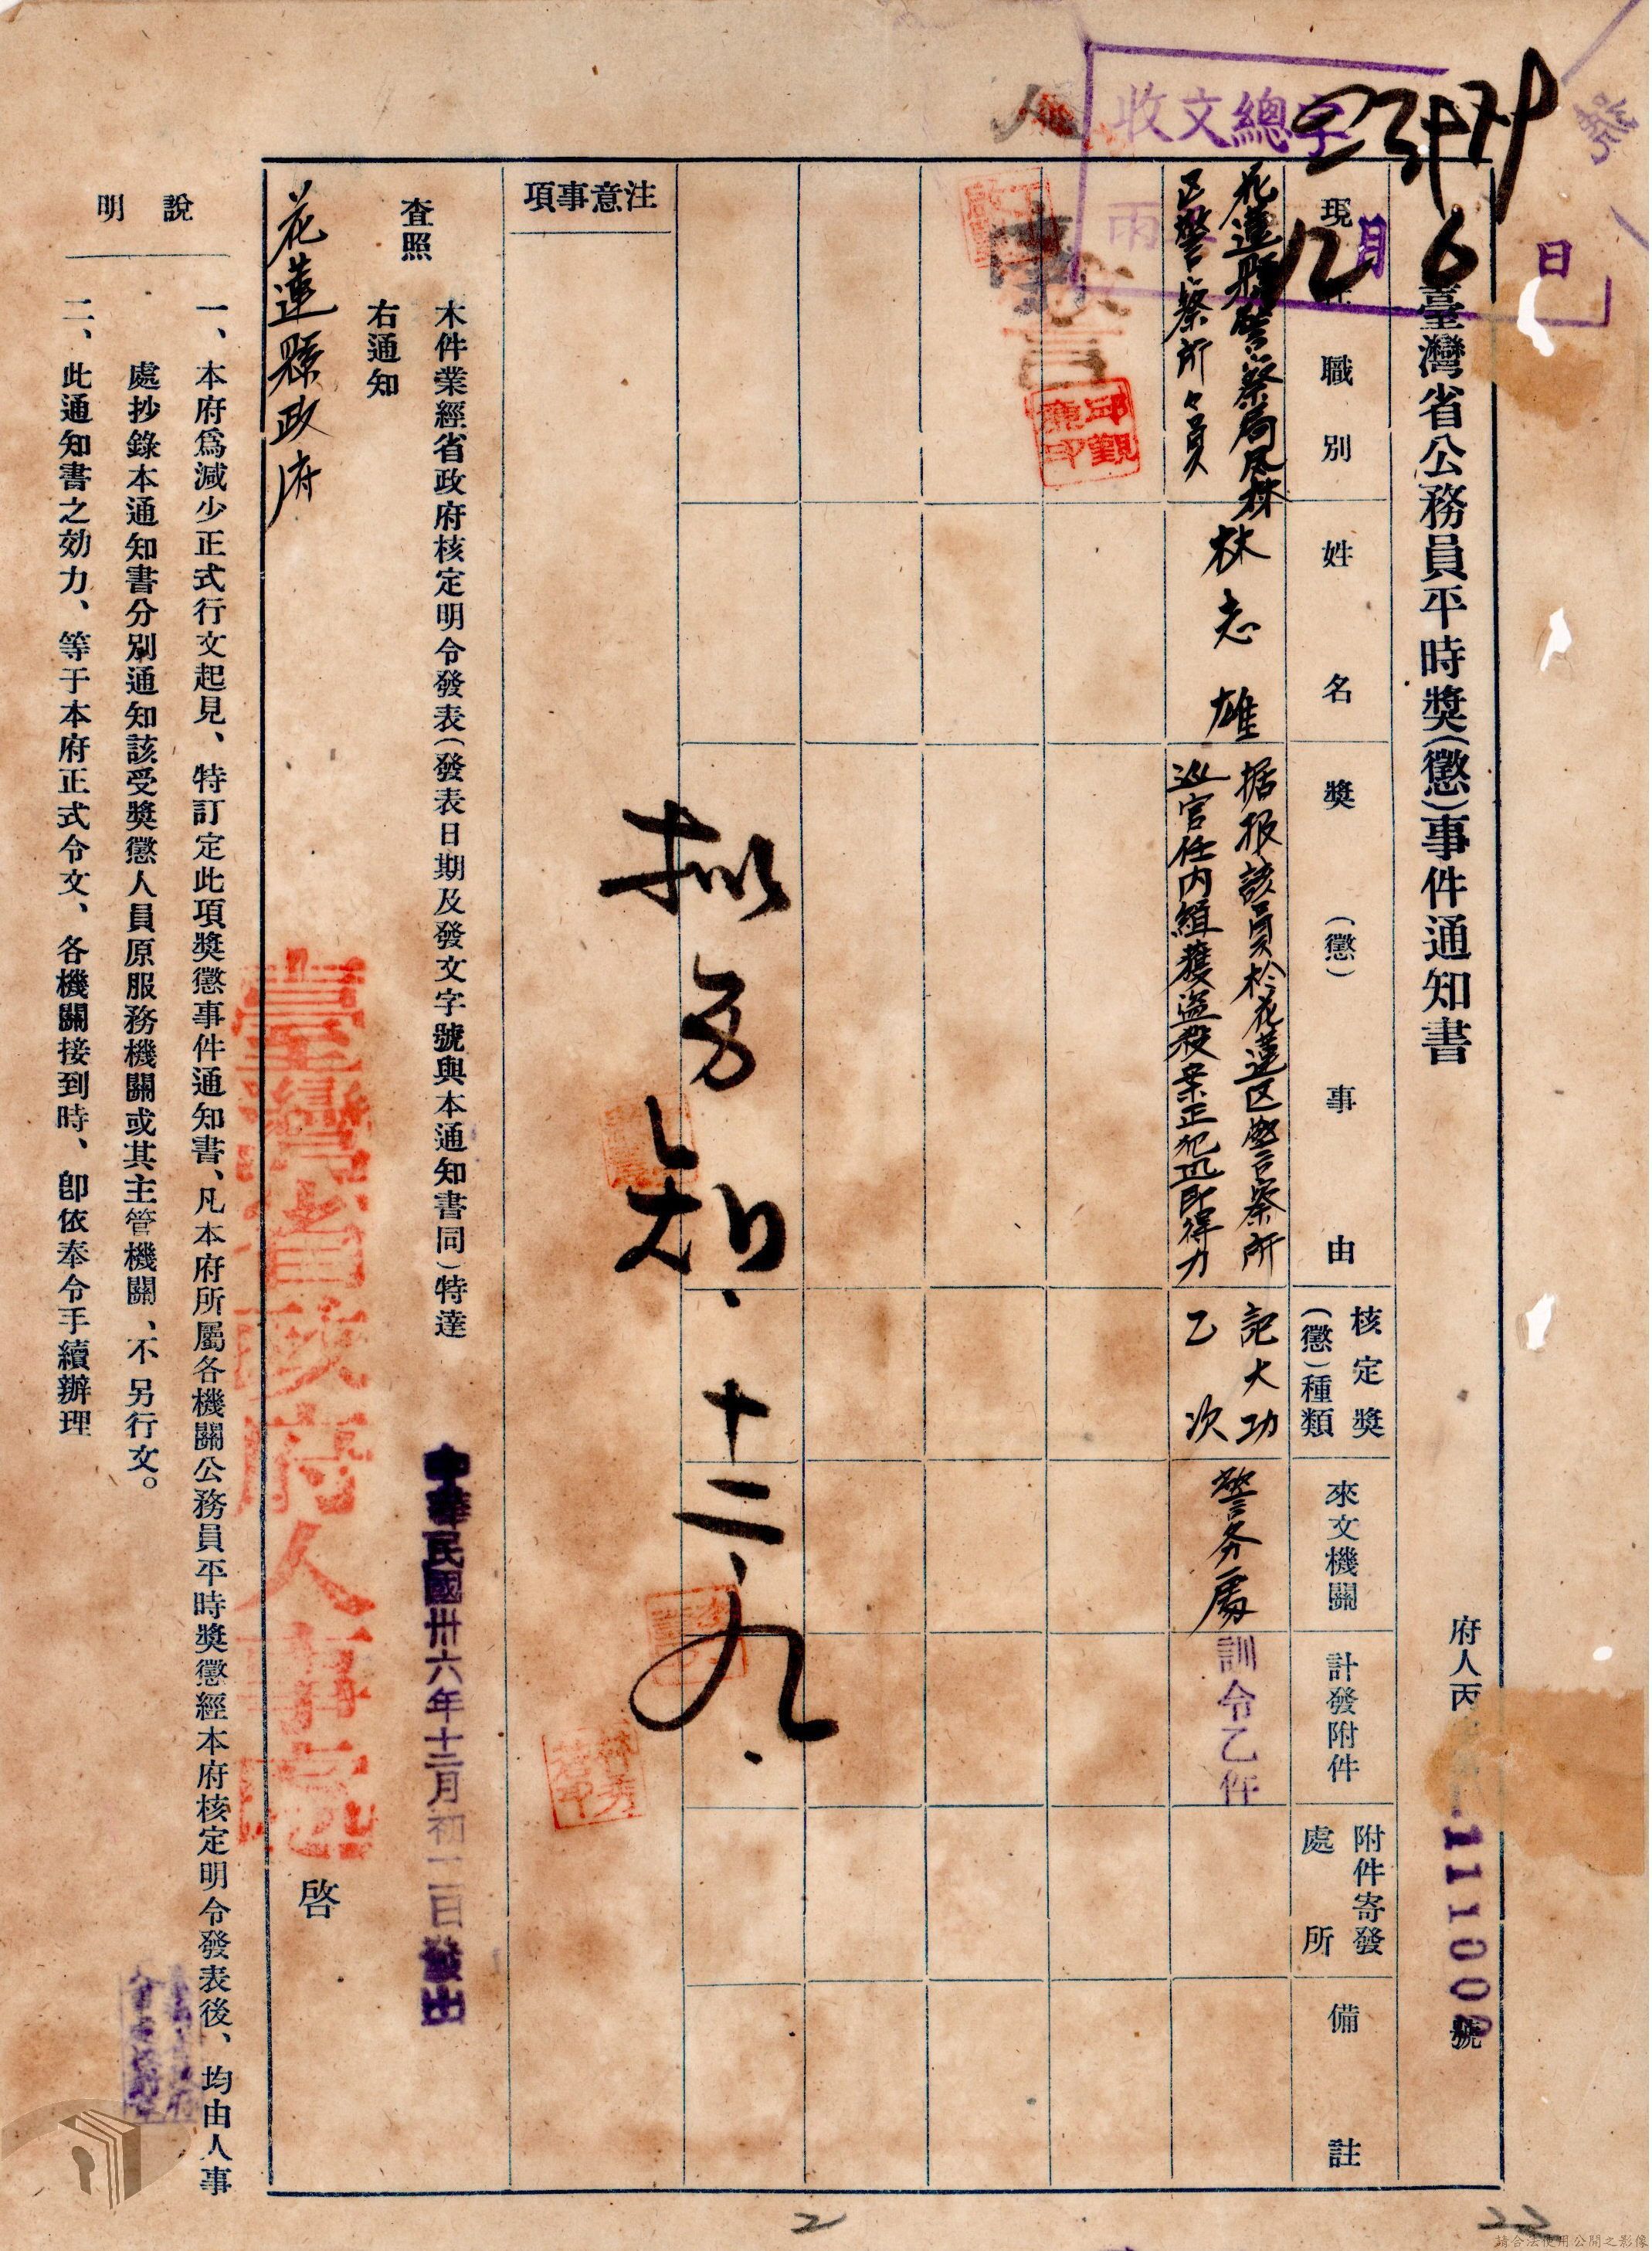 收文總字
23479
12月6日
臺灣省公務員平時獎(懲)事件通知書
府人丙
111000號
現職別
姓名
獎(懲)事由
核定獎(懲)種類
來文機關
計發附件
附件寄發處所
備註
花蓮縣警察局鳳林
区警察所々員
林志雄
据报該員於花蓮区警察所
巡官任內緝獲盜殺案正犯迅即得力
記大功
乙次
警务處
訓令乙件
拟方知.十二、九.
注意事項
本件業經省政府核定明令發表(發表日期及發文字號與本通知書同)特達
查照
右通知
花蓮縣政府
臺灣省政府人事處
啓
中華民國卅六年十二月初二日發出
說明
一、本府爲減少正式行文起見、特訂定此項獎懲事件通知書、凡本府所屬各機關公務員平時獎懲經本府核定明令發表後、均由人事
處抄錄本通知書分別通知該受獎懲人員原服務機關或其主管機關、不另行文。
二、此通知書之効力、等于本府正式令文、各機關接到時、卽依奉令手續辦理
2
22
請合法使用公開之影像